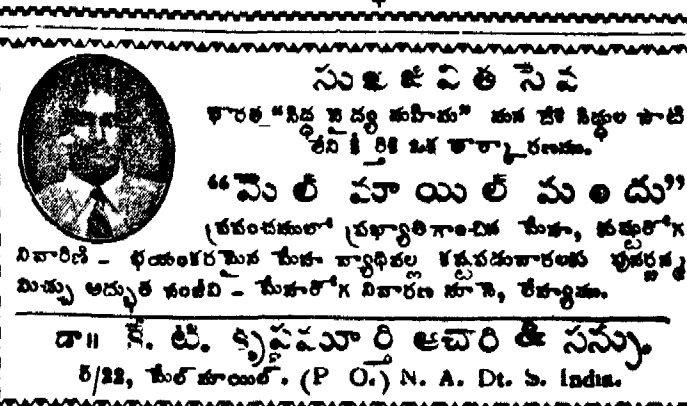 సుఖ జీవిత సేవ
భారత "సిద్ధ వైద్య మహిమ" మన దేశ సిద్ధుల సాటి
లేని కీర్తికి ఒక తార్కాణము.
"మేల్ మాయిల్ మందు"
ప్రపంచములో ప్రఖ్యాతిగాంచిన మేహ, కుష్టురోగ
నివారిణి - భయంకరమైన మేహ వ్యాధివల్ల కష్టపడువారలకు పునర్జన్మ
మిచ్చు అద్భుత సంజీవి - మేహరోగ నివారణ నూనె, లేహ్యము.
డా॥ కే. టి. కృష్ణమూర్తి ఆచారి & సన్సు.
5/22, మేల్ మాయిల్. (P O.) N. A. Dt. S. India.